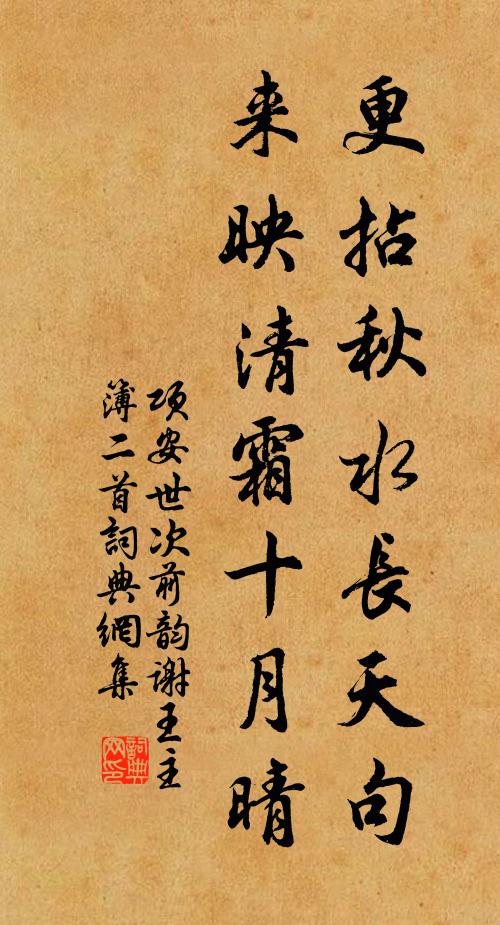 更拈秋水長天句
来映清霜十月晴
項安世次前韵謝王主
簿二首詞典網集
詞典
网印